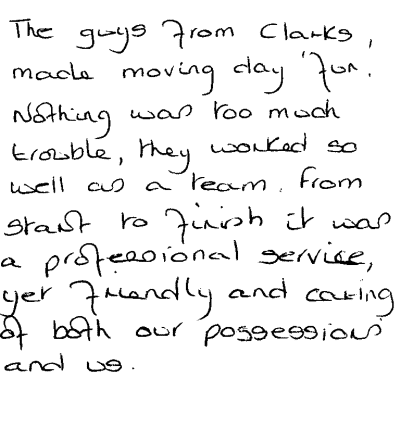 The guys from Clarks,
made moving day 'fun.
Nothing was too much
trouble, they worked so
well as a team. From
start to finish it was
a professional service,
yet friendly and caring
of both our possessions
and us.